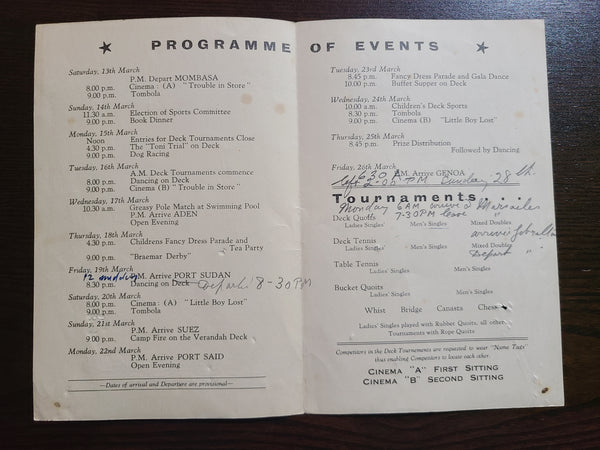 ★ PROGRAMME OF EVENTS ★
Saturday, 13th March
P.M. Depart MOMBASA
8.00 p.m. Cinema : (A) "Trouble in Store"
9.00 p.m. Tombola
Sunday, 14th March
11.30 a.m. Election of Sports Committee
9.00 p.m. Book Dinner
Monday, 15th March
Noon Entries for Deck Tournaments Close
4.30 p.m. The "Toni Trial" on Deck
9.00 p.m. Dog Racing
Tuesday, 16th March
A.M. Deck Tournaments commence
8.00 p.m. Dancing on Deck
9.00 p.m. Cinema (B) "Trouble in Store"
Wednesday, 17th March
10.30 a.m. Greasy Pole Match at Swimming Pool
P.M. Arrive ADEN
Open Evening
Thursday, 18th March
4.30 p.m. Childrens Fancy Dress Parade and
Tea Party
9.00 p.m. "Braemar Derby"
Friday, 19th March
12 midday
P.M. Arrive PORT SUDAN
8.30 p.m. Dancing on Deck Depart 8-30 PM
Saturday, 20th March
8.00 p.m. Cinema : (A) "Little Boy Lost"
9.00 p.m. Tombola
Sunday, 21st March
P.M. Arrive SUEZ
9.00 p.m. Camp Fire on the Verandah Deck
Monday, 22nd March
P.M. Arrive PORT SAID
Open Evening
—Dates of arrival and Departure are provisional—
Tuesday, 23rd March
8.45 p.m. Fancy Dress Parade and Gala Dance
10.00 p.m. Buffet Supper on Deck
Wednesday, 24th March
10.00 a.m. Children's Deck Sports
8.30 p.m. Tombola
9.00 p.m. Cinema (B) "Little Boy Lost"
Thursday, 25th March
8.45 p.m. Prize Distribution
Followed by Dancing
Friday, 26th March
6.30 A.M. Arrive GENOA
PM Sunday, 28th
Tournaments . .
Monday 6AM arrive Marsailes
Deck Quoits 7-30PM leave
Ladies Singles' Men's Singles Mixed Doubles
arrive Gibralta
Deck Tennis
Ladies Singles' Men's Singles Mixed Doubles
Depart "
Table Tennis
Ladies Singles' Men's Singles
Bucket Quoits
Ladies' Singles Men's Singles
Whist Bridge Canasta Chess
Ladies' Singles played with Rubber Quoits, all other
Tournaments with Rope Quoits
Competitors in the Deck Tournements are requested to wear "Name Tags"
thus enabling Competitors to locate each other.
CINEMA "A" FIRST SITTING
CINEMA "B" SECOND SITTING